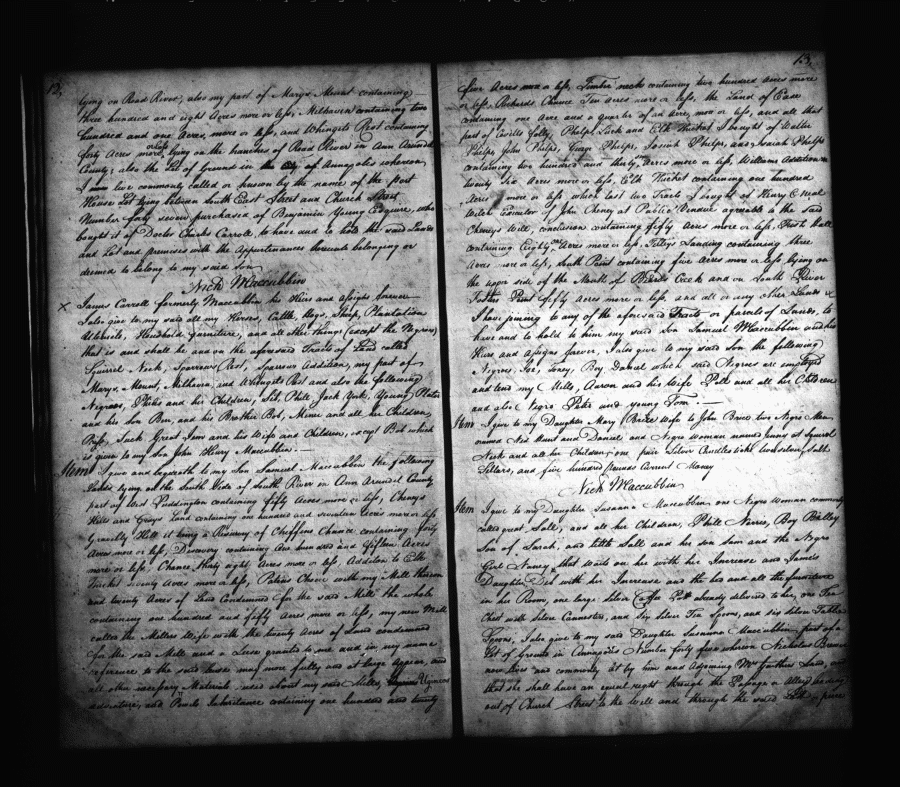 12,
lying on Road River; also my part of Marys Mount containing
three hundred and eight Acres more or less, Milhaven containing two
hundred and one Acres, more or less, and Whingets Rest containing
forty Acres more or less lying on the branches of Road River in Ann Arundel
County; also the Lot of Ground in the City of Annapolis whereon
I now live commonly called or known by the name of the Post
House Lot lying between South East Street and Church Street
Number forty seven purchased of Benjamin Young Esquire, who
bought it of Doctor Charles Carroll, to have and to hold the said Lands
and Lot and premises with the Appurtenances thereunto belonging or
deemed to belong to my said Son
Nick Maccubbin
x James Carroll formerly Maccubbin his Heirs and Assigns forever
I also give to my said all my Horses, Cattle, Hogs, Sheep, Plantation
Utensils, Household furniture, and all other things (except the Negroes)
that is and shall be and on the aforesaid Tracts of Land called
Squirrel Nick, Sparrows Rest, Sparrows Addition, my part of
Marys Mount, Milhaven, and Whingets Rest and also the following
Negroes, Phillis and her Children, Sib, Phill, Jack York, Young Plato
and his Son Ben, and his Brother Bob, Mime and all her Children,
Bess, Jack Great Jem and his Wife and Children, except Bob which
is given to my Son John Henry Maccubbin. —
Item I give and bequeath to my Son Samuel Maccubbin the following
Lands lying on the South Side of South River in Ann Arundel County
part of West Puddington containing fifty Acres more or less, Cheneys
Hills and Grays Land containing one hundred and seventeen Acres more or less
Gravelly Hill it being a Resurvey of Cheffens Chance containing forty
Acres more or less, Discovery containing One hundred and fifteen Acres
more or less, Chance thirty eight Acres more or less, Addition to Elk
Thicket seventy Acres more or less, Peters Choice with my Mill thereon
and twenty Acres of Land Condemned for the said Mill the whole
containing one hundred and fifty Acres more or less, my new Mill
called the Millers Wife with the twenty Acres of Land condemned
for the said Mill and a Lease granted to me and in my name
reference to the said Lease may more fully and at large appear, and
all other necessary Materials used about my said Mills,
adventure, and Pearls Inheritance containing one hundred and twenty
13,
five Acres more or less, Timber neck containing two hundred Acres more
or less, Richards Chance Ten Acres more or less, the Land of Ease
containing one Acre and a quarter of an Acre, more or less, and all that
part of Folly, Phelps Luck and Elk Thicket I bought of Walter
Phelps, John Phelps, George Phelps, Josiah Phelps, and Isaiah Phelps
containing two hundred and thirty Acres more or less, Williams Addition
twenty six Acres more or less, Elk Thicket containing one hundred
Acres more or less which last two Tracts I bought of Henry
Welch Executor of John Cheney at Public Vendue agreeable to the said
Cheneys Will, conclusion containing fifty Acres more or less, Hall
containing Eighty one Acres more or less, Tilleys Landing containing three
Acres more or less, South Point containing five Acres more or less, lying on
the upper side of the Mouth of Beards Creek and on South River
Point fifty Acres more or less, and all or any other Lands
I have joining to any of the aforesaid Tracts or parcels of Lands, to
have and to hold to him my said Son Samuel Maccubbin and his
Heirs and Assigns forever, I also give to my said Son the following
Negroes, Joe, Toney, Boy Daniel which said Negroes are employed
and tend my Mills, Aaron and his Wife Patt and all her Children
and also Negro Pette and young Tom: —
Item I give to my Daughter Mary (Brice Wife to John Brice two Negro Men
named Ned Hunt and Daniel and Negro woman named Jenny at Squirrel
Nick and all her Children, one pair Silver Candlesticks two silver Salt
Sellars, and five hundred pounds Current Money
Nick Maccubbin
Item I give to my Daughter Susanna Maccubbin one Negro Woman commonly
called great Sall, and all her Children, Phill Norris, Boy Balley
Son of Sarah, and little Sall and her son Sam and the Negro
Girl Nancy that waits on her with her Increase and James
Daughter Deb with her Increase and the bed and all the furniture
in her Room, one large silver Coffee Pott already delivered to her, one Tea
Chest with silver Cannesters, and six silver Tea Spoons, and six Silver Table
Spoons, I also give to my said Daughter Susanna Maccubbin, part of a
Lot of Ground in Annapolis Number forty five whereon Nicholas
now lives and commonly let by him and Adjoining Mrs Land, and
that she shall have an equal right through the Passage or Alley leading
out of Church Street to the Well and through the said